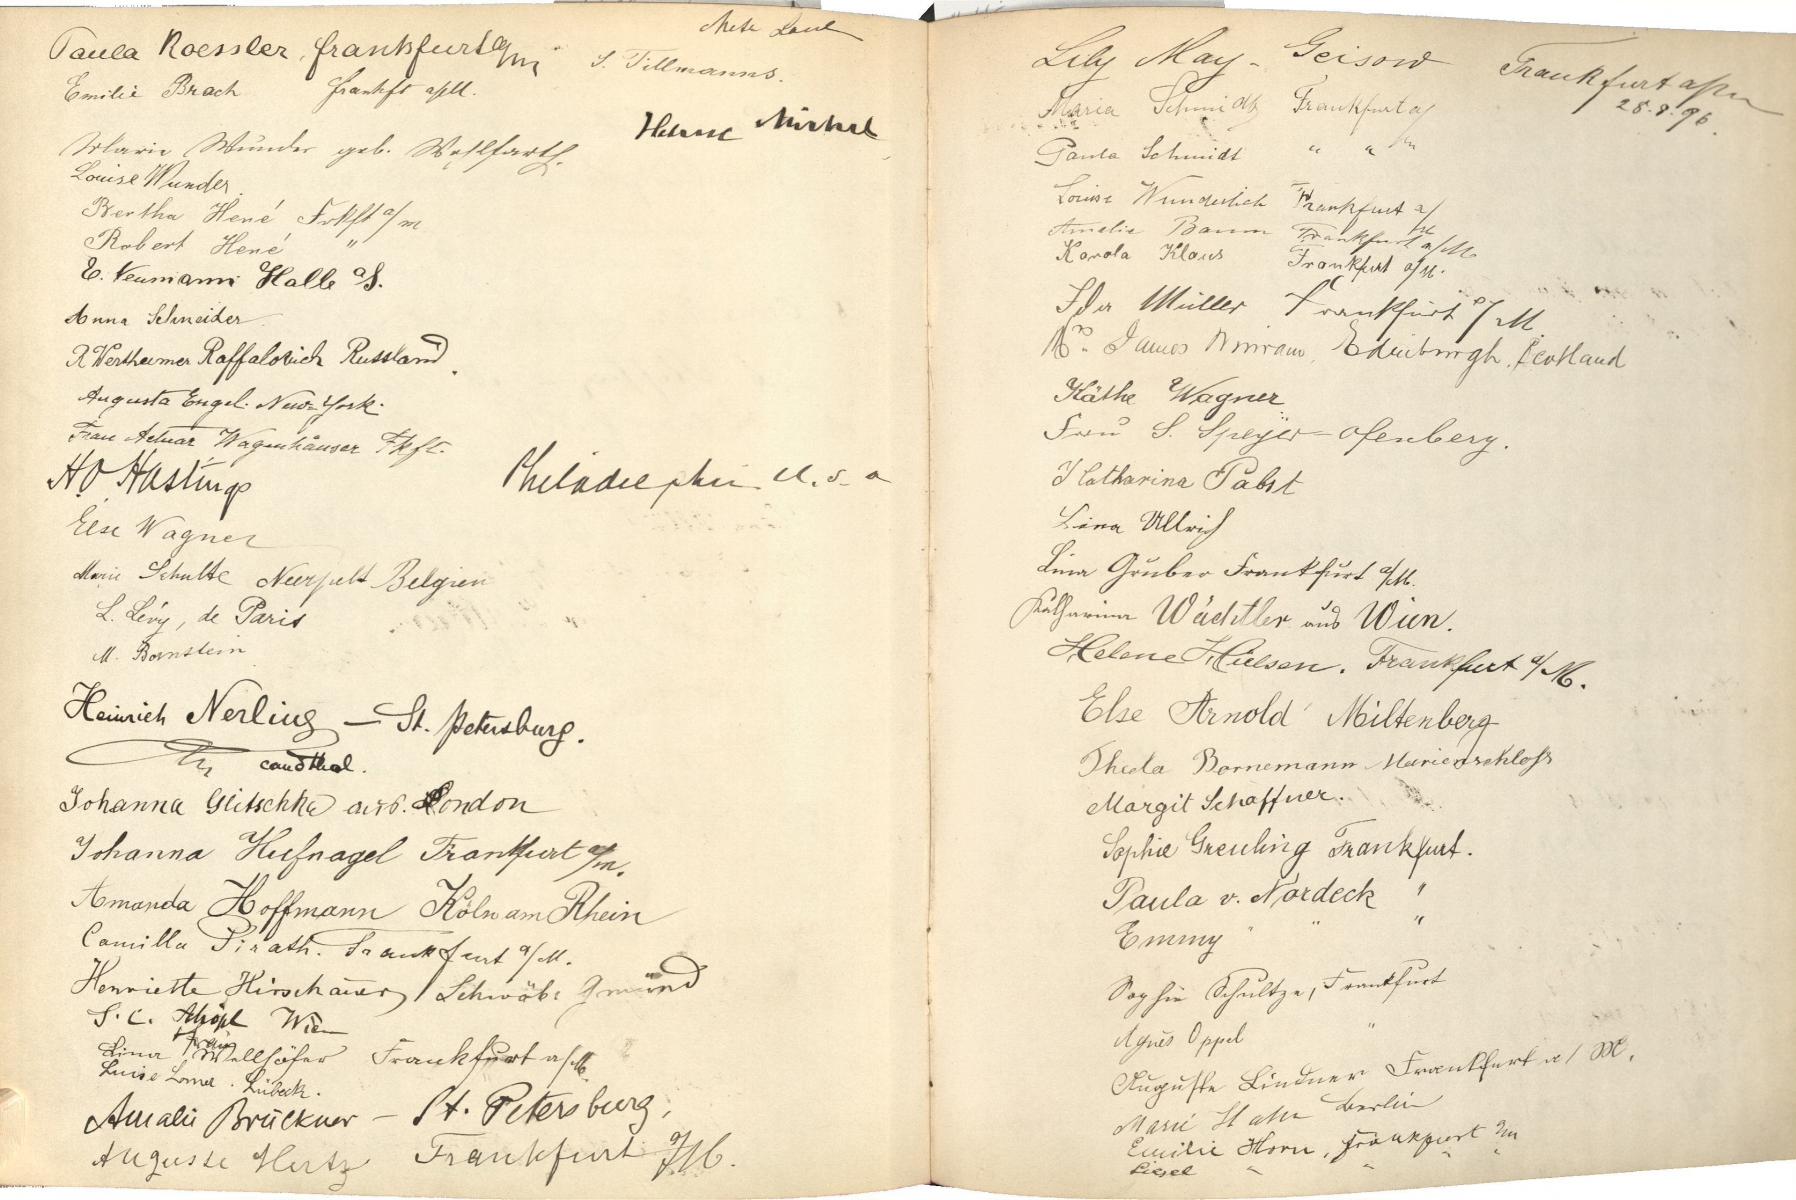 Paula Roessler, Frankfurt a/m
S. Tillmanns.
Emilie Brach Frankft a/M.
Helene Michel
Marie Wunder geb. Wohlfarth.
Louise Wunder.
Bertha Hené Frkft a/m
Robert Hené "
E. Neumann Halle a/S.
Anna Schneider
R Wertheimer Raffalovich Russland.
Augusta Engel. New-York.
Frau Actuar Wagenhäuser Fkft.
H. O Hastings Philadelphia U. S. a
Else Wagner
Marie Schulte Neerpelt Belgien
L. Lévy, de Paris
M. Bornstein
Heinrich Nerling — St. Petersburg.
cand. theol.
Johanna Glitschka aus. London
Johanna Hufnagel Frankfurt a/m.
Amanda Hoffmann Köln am Rhein
Camilla Pirath. Frankfurt a/M.
Henriette Hirschauer Schwäb. Gmünd
S. C. Wien
Lina Wellhöfer Frankfurt a/M.
Frau
Luise Lübeck.
Amalie Brückner — St. Petersburg.
Auguste Hertz Frankfurt a/M.
Lily May-Geisow Frankfurt a/m
28.9.96.
Maria Schmidt Frankfurt a/
Paula Schmidt " " m
Louise Wunderlich Frankfurt a/M
Amalie Baum Frankfurt a/M
Karola Klaus Frankfurt a/M.
Ida Müller Frankfurt a/M
Mrs. James Edinburgh, Scotland
Käthe Wagner
Frau S. Speyer-Ofenberg.
Katharina Pabst
Lina Ullrich
Lina Gruber Frankfurt a/M.
Katharina Wächtler aus Wien.
Helene Hielsen. Frankfurt a/M.
Else Arnold Miltenberg
Theda Bornemann Marienschloss
Margit Schaffner.
Sophie Greuling Frankfurt.
Paula v. Nordeck "
Emmy " " "
Sophie Schultze, Frankfurt
Agnes Oppel "
Auguste Lindner Frankfurt a/M.
Marie Berlin
Emilie Horn, Frankfurt a/m
Liesel " " " "